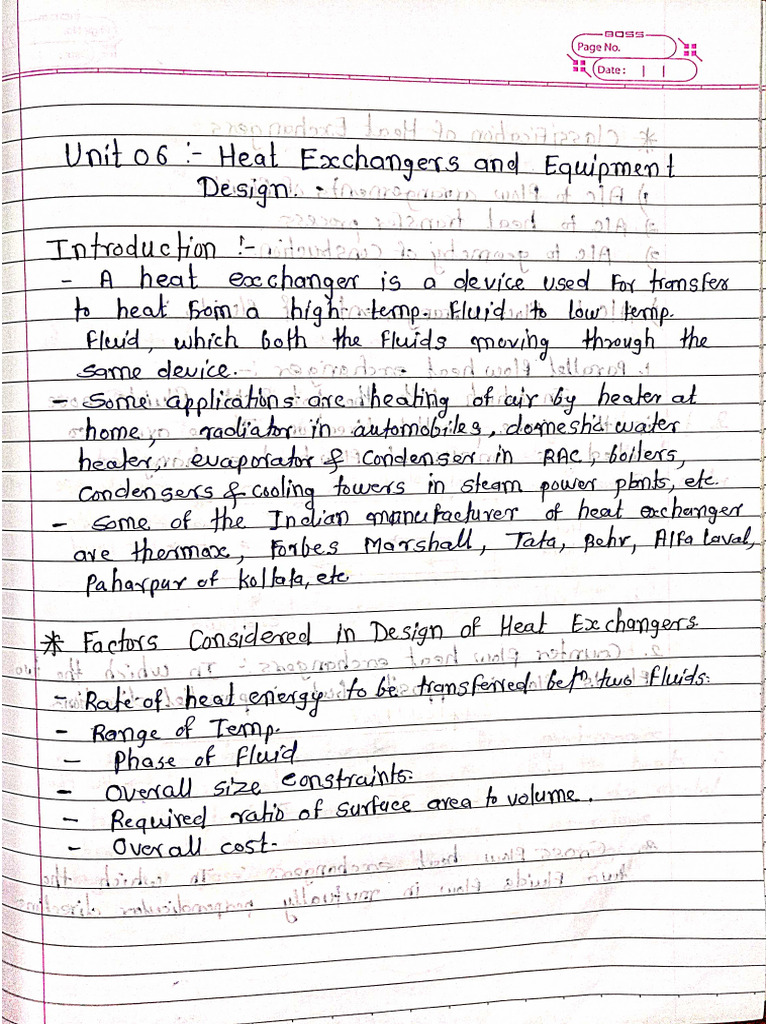 BOSS
Page No.
Date :
Unit 06 :- Heat Exchangers and Equipment
Design. -
Introduction :-
- A heat exchanger is a device used for transfer
to heat from a high temp. fluid to low temp.
fluid, which both the fluids moving through the
same device.
- Some applications are heating of air by heater at
home, radiator in automobiles, domestic water
heater, evaporator & Condenser in RAC, boilers,
Condensers & cooling towers in steam power plants, etc.
- Some of the Indian manufacturer of heat exchanger
are thermax, Forbes Marshall, Tata, Behr, Alfa Laval,
Paharpur of kolkata, etc.
* Factors Considered in Design of Heat Exchangers
- Rate of heat energy to be transferred betn two fluids.
- Range of Temp.
- Phase of fluid
- Overall size constraints.
- Required ratio of surface area to volume.
- Overall cost.